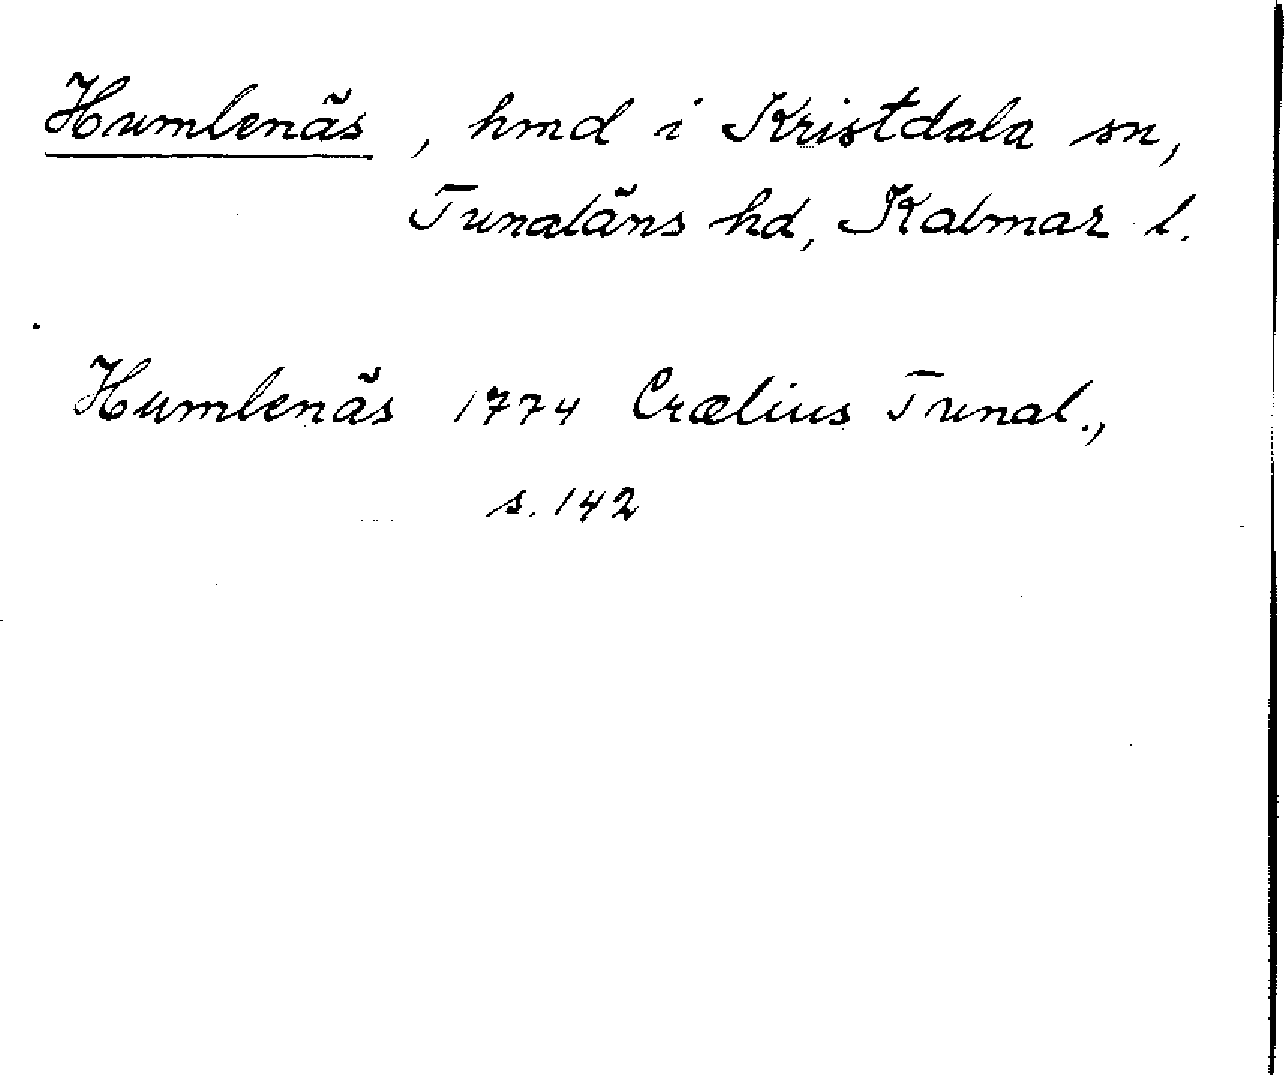 Humlenäs, hmd i Kristdala sn,
Tunaläns hd, Kalmar l.
Humlenäs 1774 Crælius Tunal.,
s. 142